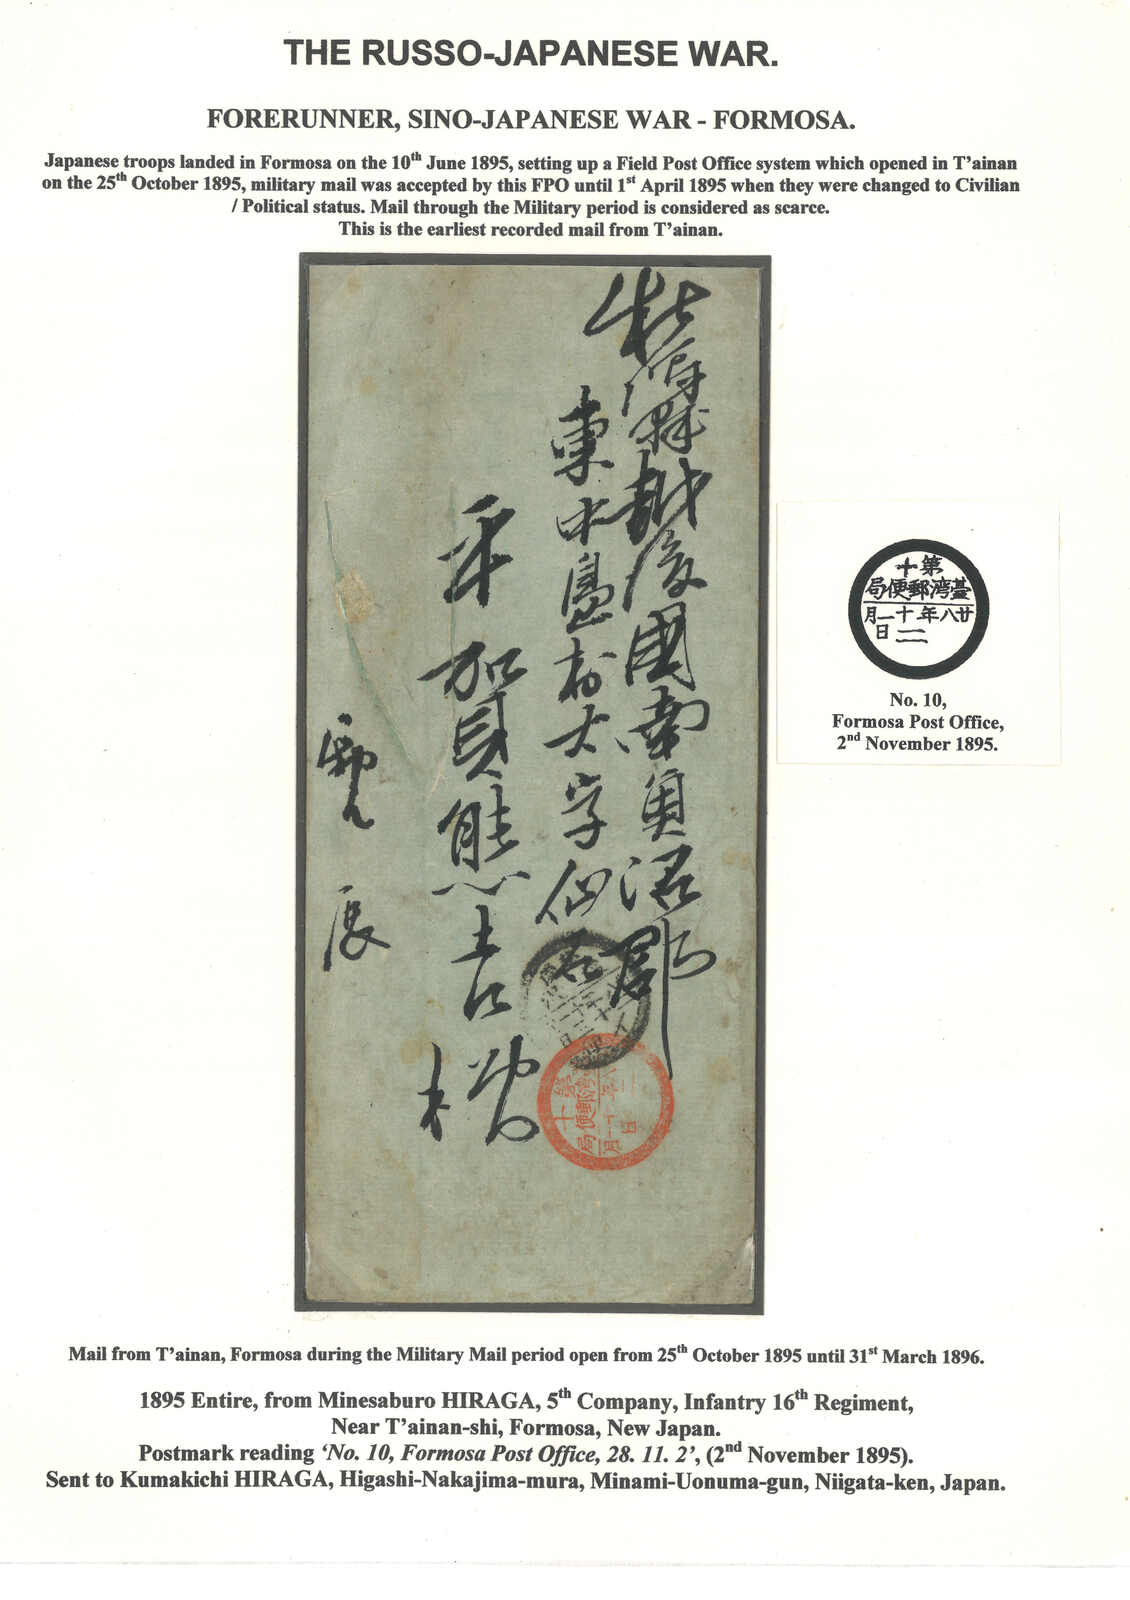 THE RUSSO-JAPANESE WAR.
FORERUNNER, SINO-JAPANESE WAR - FORMOSA.
Japanese troops landed in Formosa on the 10th June 1895, setting up a Field Post Office system which opened in T'ainan
on the 25th October 1895, military mail was accepted by this FPO until 1st April 1895 when they were changed to Civilian
/ Political status. Mail through the Military period is considered as scarce.
This is the earliest recorded mail from T'ainan.
縣越後國南魚沼郡
東中島村大字仙石
平賀熊吉様
第十
臺灣郵便局
廿八年十一月
二日
No. 10,
Formosa Post Office,
2nd November 1895.
第十
臺灣郵便局
Mail from T'ainan, Formosa during the Military Mail period open from 25th October 1895 until 31st March 1896.
1895 Entire, from Minesaburo HIRAGA, 5th Company, Infantry 16th Regiment,
Near T'ainan-shi, Formosa, New Japan.
Postmark reading 'No. 10, Formosa Post Office, 28. 11. 2', (2nd November 1895).
Sent to Kumakichi HIRAGA, Higashi-Nakajima-mura, Minami-Uonuma-gun, Niigata-ken, Japan.